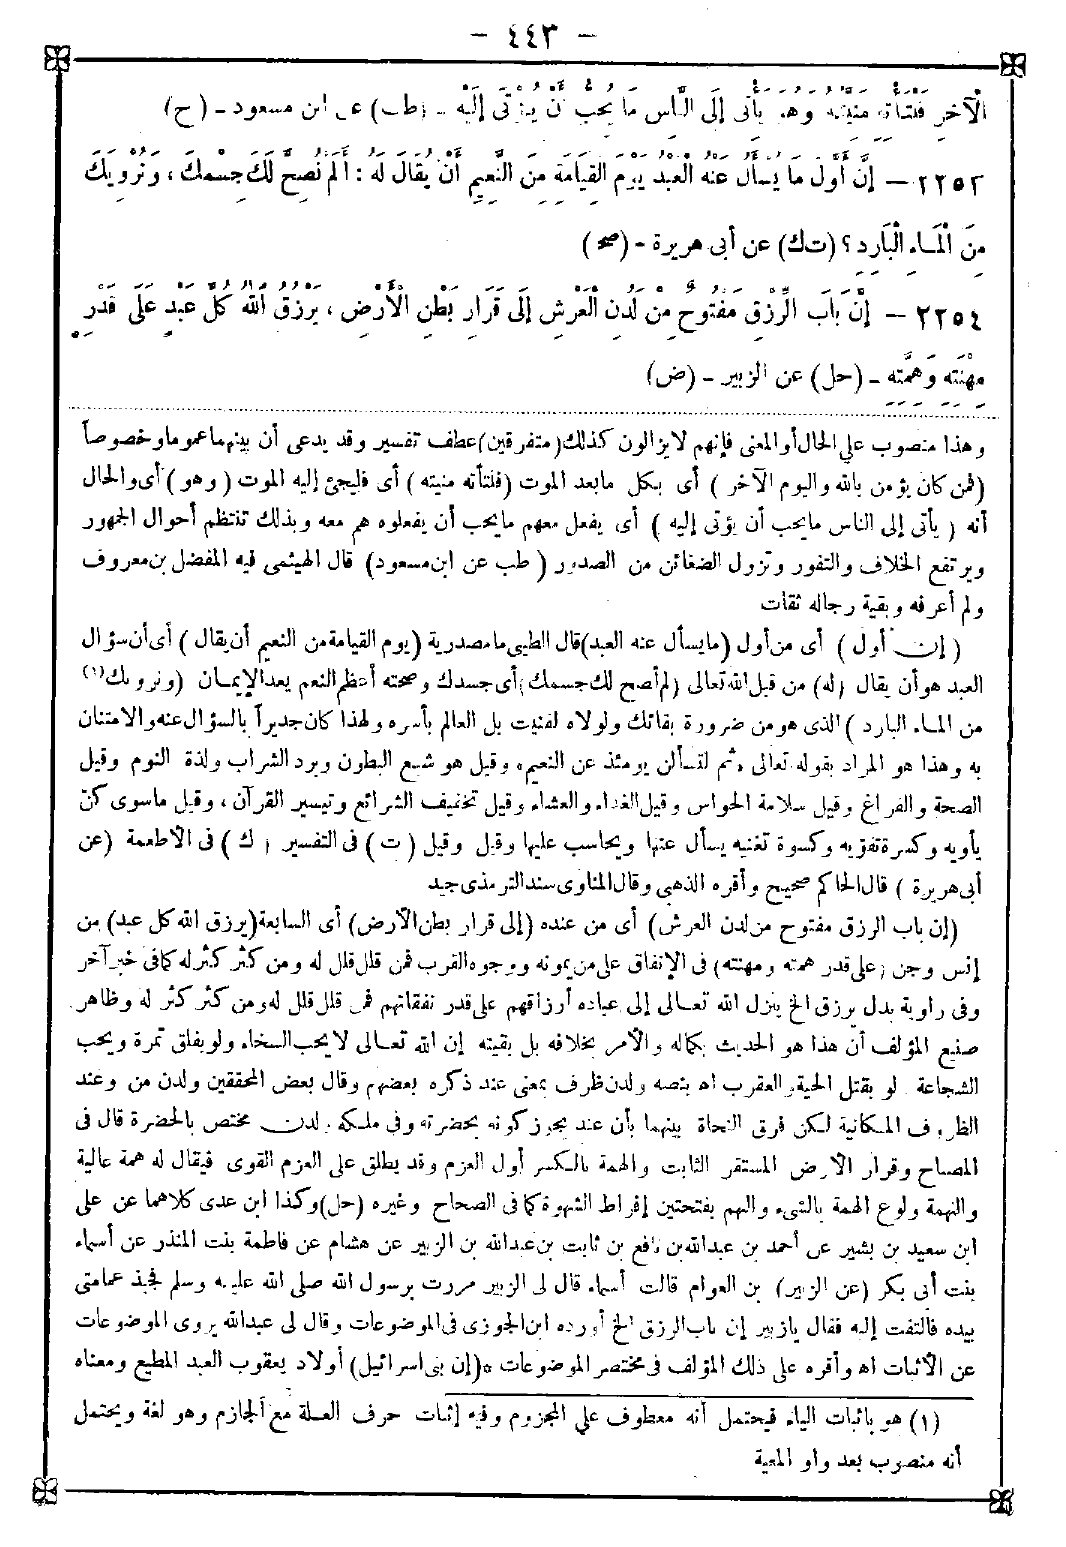 - ٤٤٣ -
الْآخِرِ فَلْتَأْتِهِ مَنِيَّتُهُ وَهُوَ يَأْتِى إِلَى النَّاسِ مَا يُحِبُّ أَنْ يُؤْتَى إِلَيْهِ - (طب) عن ابن مسعود - (ح)
٢٢٥٢ - إِنَّ أَوَّلَ مَا يُسْأَلُ عَنْهُ الْعَبْدُ يَوْمَ الْقِيَامَةِ مِنَ النَّعِيمِ أَنْ يُقَالَ لَهُ : أَلَمْ نُصِحَّ لَكَ جِسْمَكَ ، وَنُرْوِيكَ
مِنَ الْمَاءِ الْبَارِدِ؟ (ت ك) عن أبى هريرة - (صح)
٢٢٥٤ - إِنَّ بَابَ الرِّزْقِ مَفْتُوحٌ مِنْ لَدُنِ الْعَرْشِ إِلَى قَرَارِ بَطْنِ الْأَرْضِ ، يَرْزُقُ اللهُ كُلَّ عَبْدٍ عَلَى قَدْرِ
مِهْنَتِهِ وَهِمَّتِهِ - (حل) عن الزبير - (ض)
وهذا منصوب على الحال أو المعنى فإنهم لا يزالون كذلك (متفرقين) عطف تفسير وقد يدعى أن بينهما عموما وخصوصاً
(فمن كان يؤمن بالله واليوم الآخر ) أى بكل ما بعد الموت (فلتأته منيته ) أى فليجئ إليه الموت ( وهو ) أى والحال
أنه ( يأتى إلى الناس ما يحب أن يؤتى إليه ) أى يفعل معهم ما يحب أن يفعلوه هم معه وبذلك تنتظم أحوال الجمهور
ويرتفع الخلاف والنفور وتزول الضغائن من الصدور ( طب عن ابن مسعود) قال الهيثمى فيه المفضل بن معروف
ولم أعرفه وبقية رجاله ثقات
( إن أول ) أى من أول (ما يسأل عنه العبد) قال الطيبى ما مصدرية (يوم القيامة من النعيم أن يقال ) أى أن سؤال
العبد هو أن يقال (له) من قبل الله تعالى (لم أصح لك جسمك) أى جسدك وصحته أعظم النعم بعد الإيمان (ونرويك(١)
من الماء البارد ) الذى هو من ضرورة بقائك ولولاه لفنيت بل العالم بأسره ولهذا كان جديراً بالسؤال عنه والامتنان
به وهذا هو المراد بقوله تعالى « ثم لتسألن يومئذ عن النعيم» وقيل هو شبع البطون وبرد الشراب ولذة النوم وقيل
الصحة والفراغ وقيل سلامة الحواس وقيل الغداء والعشاء وقيل تخفيف الشرائع وتيسير القرآن ، وقيل ما سوى كنّ
يأويه وكسرة تقويه وكسوة تغنيه يسأل عنها ويحاسب عليها وقيل وقيل ( ت ) فى التفسير ( ك ) فى الأطعمة (عن
أبى هريرة ) قال الحاكم صحيح وأقره الذهبى وقال المناوى سند الترمذى جيد
(إن باب الرزق مفتوح من لدن العرش) أى من عنده (إلى قرار بطن الأرض) أى السابعة (يرزق الله كل عبد) من
إنس وجن (على قدر همته ومهنته) فى الإنفاق على من يمونه ووجوه القرب فمن قلل قلل له ومن كثر كثر له كما فى خبر آخر
وفى رواية بدل يرزق الخ ينزل الله تعالى إلى عباده أرزاقهم على قدر نفقاتهم فمن قلل قلل له ومن كثر كثر له وظاهر
صنيع المؤلف أن هذا هو الحديث بكماله والأمر بخلافه بل بقيته إن الله تعالى لا يحب السخاء ولو بفلق تمرة ويحب
الشجاعة ولو بقتل الحية والعقرب اه بنصه ولدن ظرف بمعنى عند ذكره بعضهم وقال بعض المحققين ولدن من وعند
الظروف المكانية لكن فرق النحاة بينهما بأن عند يجوز كونه بحضرته وفى ملكه ولدن مختص بالحضرة قال فى
المصباح وقرار الأرض المستقر الثابت والهمة بالكسر أول العزم وقد يطلق على العزم القوى فيقال له همة عالية
والنهمة ولوع الهمة بالشىء والنهم بفتحتين إفراط الشهوة كما فى الصحاح وغيره (حل) وكذا ابن عدى كلاهما عن على
ابن سعيد بن بشير عن أحمد بن عبدالله بن نافع بن ثابت بن عبدالله بن الزبير عن هشام عن فاطمة بنت المنذر عن أسماء
بنت أبى بكر (عن الزبير) بن العوام قالت أسماء قال لى الزبير مررت برسول الله صلى الله عليه وسلم فجبذ عمامتى
بيده فالتفت إليه فقال يا زبير إن باب الرزق الخ أورده ابن الجوزى فى الموضوعات وقال لى عبدالله يروى الموضوعات
عن الأثبات اه وأقره على ذلك المؤلف فى مختصر الموضوعات *(إن بنى اسرائيل) أولاد يعقوب العبد المطيع ومعناه
(١) هو بإثبات الياء فيحتمل أنه معطوف على المجزوم وفيه إثبات حرف العلة مع الجازم وهو لغة ويحتمل
أنه منصوب بعد واو المعية